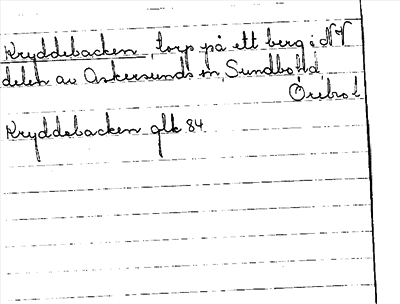 Kryddebacken, torp på ett berg i NV
delen av Askersunds sn, Sundbo hd,
Örebro l
Kryddabacken glk 84